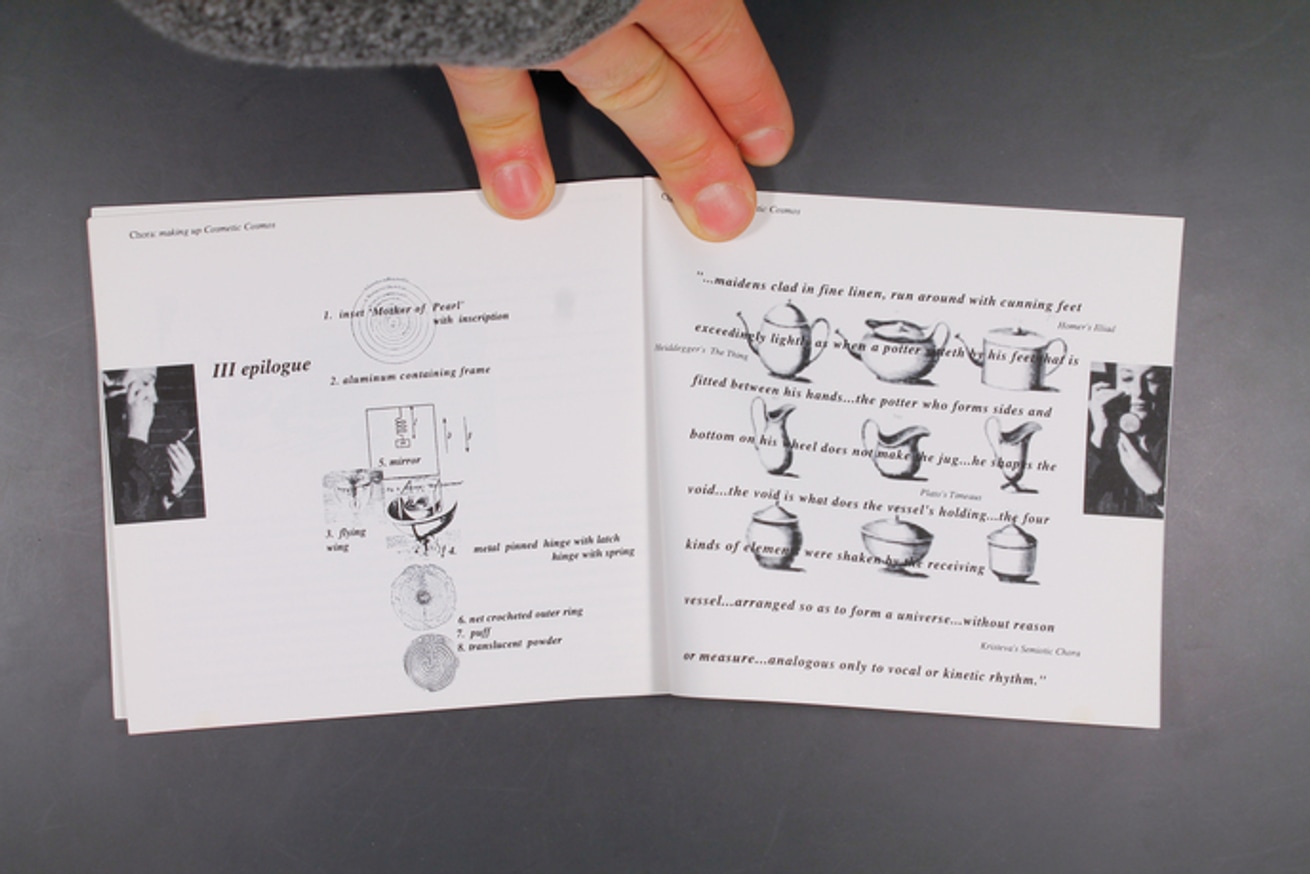 Choric making up Cosmetic Cosmos
1. inset "Mother of Pearl"
with inscription
III epilogue
2. aluminum containing frame
5. mirror
3. flying
wing
4. metal pinned hinge with latch
hinge with spring
6. net crocheted outer ring
7. puff
8. translucent powder
Cosmos
"...maidens clad in fine linen, run around with cunning feet
Homer's Iliad
exceedingly lightly as when a potter sitteth by his feet that is
Heidegger's The Thing
fitted between his hands...the potter who forms sides and
bottom on his wheel does not make the jug...he shapes the
Plato's Timeaus
void...the void is what does the vessel's holding...the four
kinds of element were shaken by the receiving
vessel...arranged so as to form a universe...without reason
Kristeva's Semiotic Chora
or measure...analogous only to vocal or kinetic rhythm."